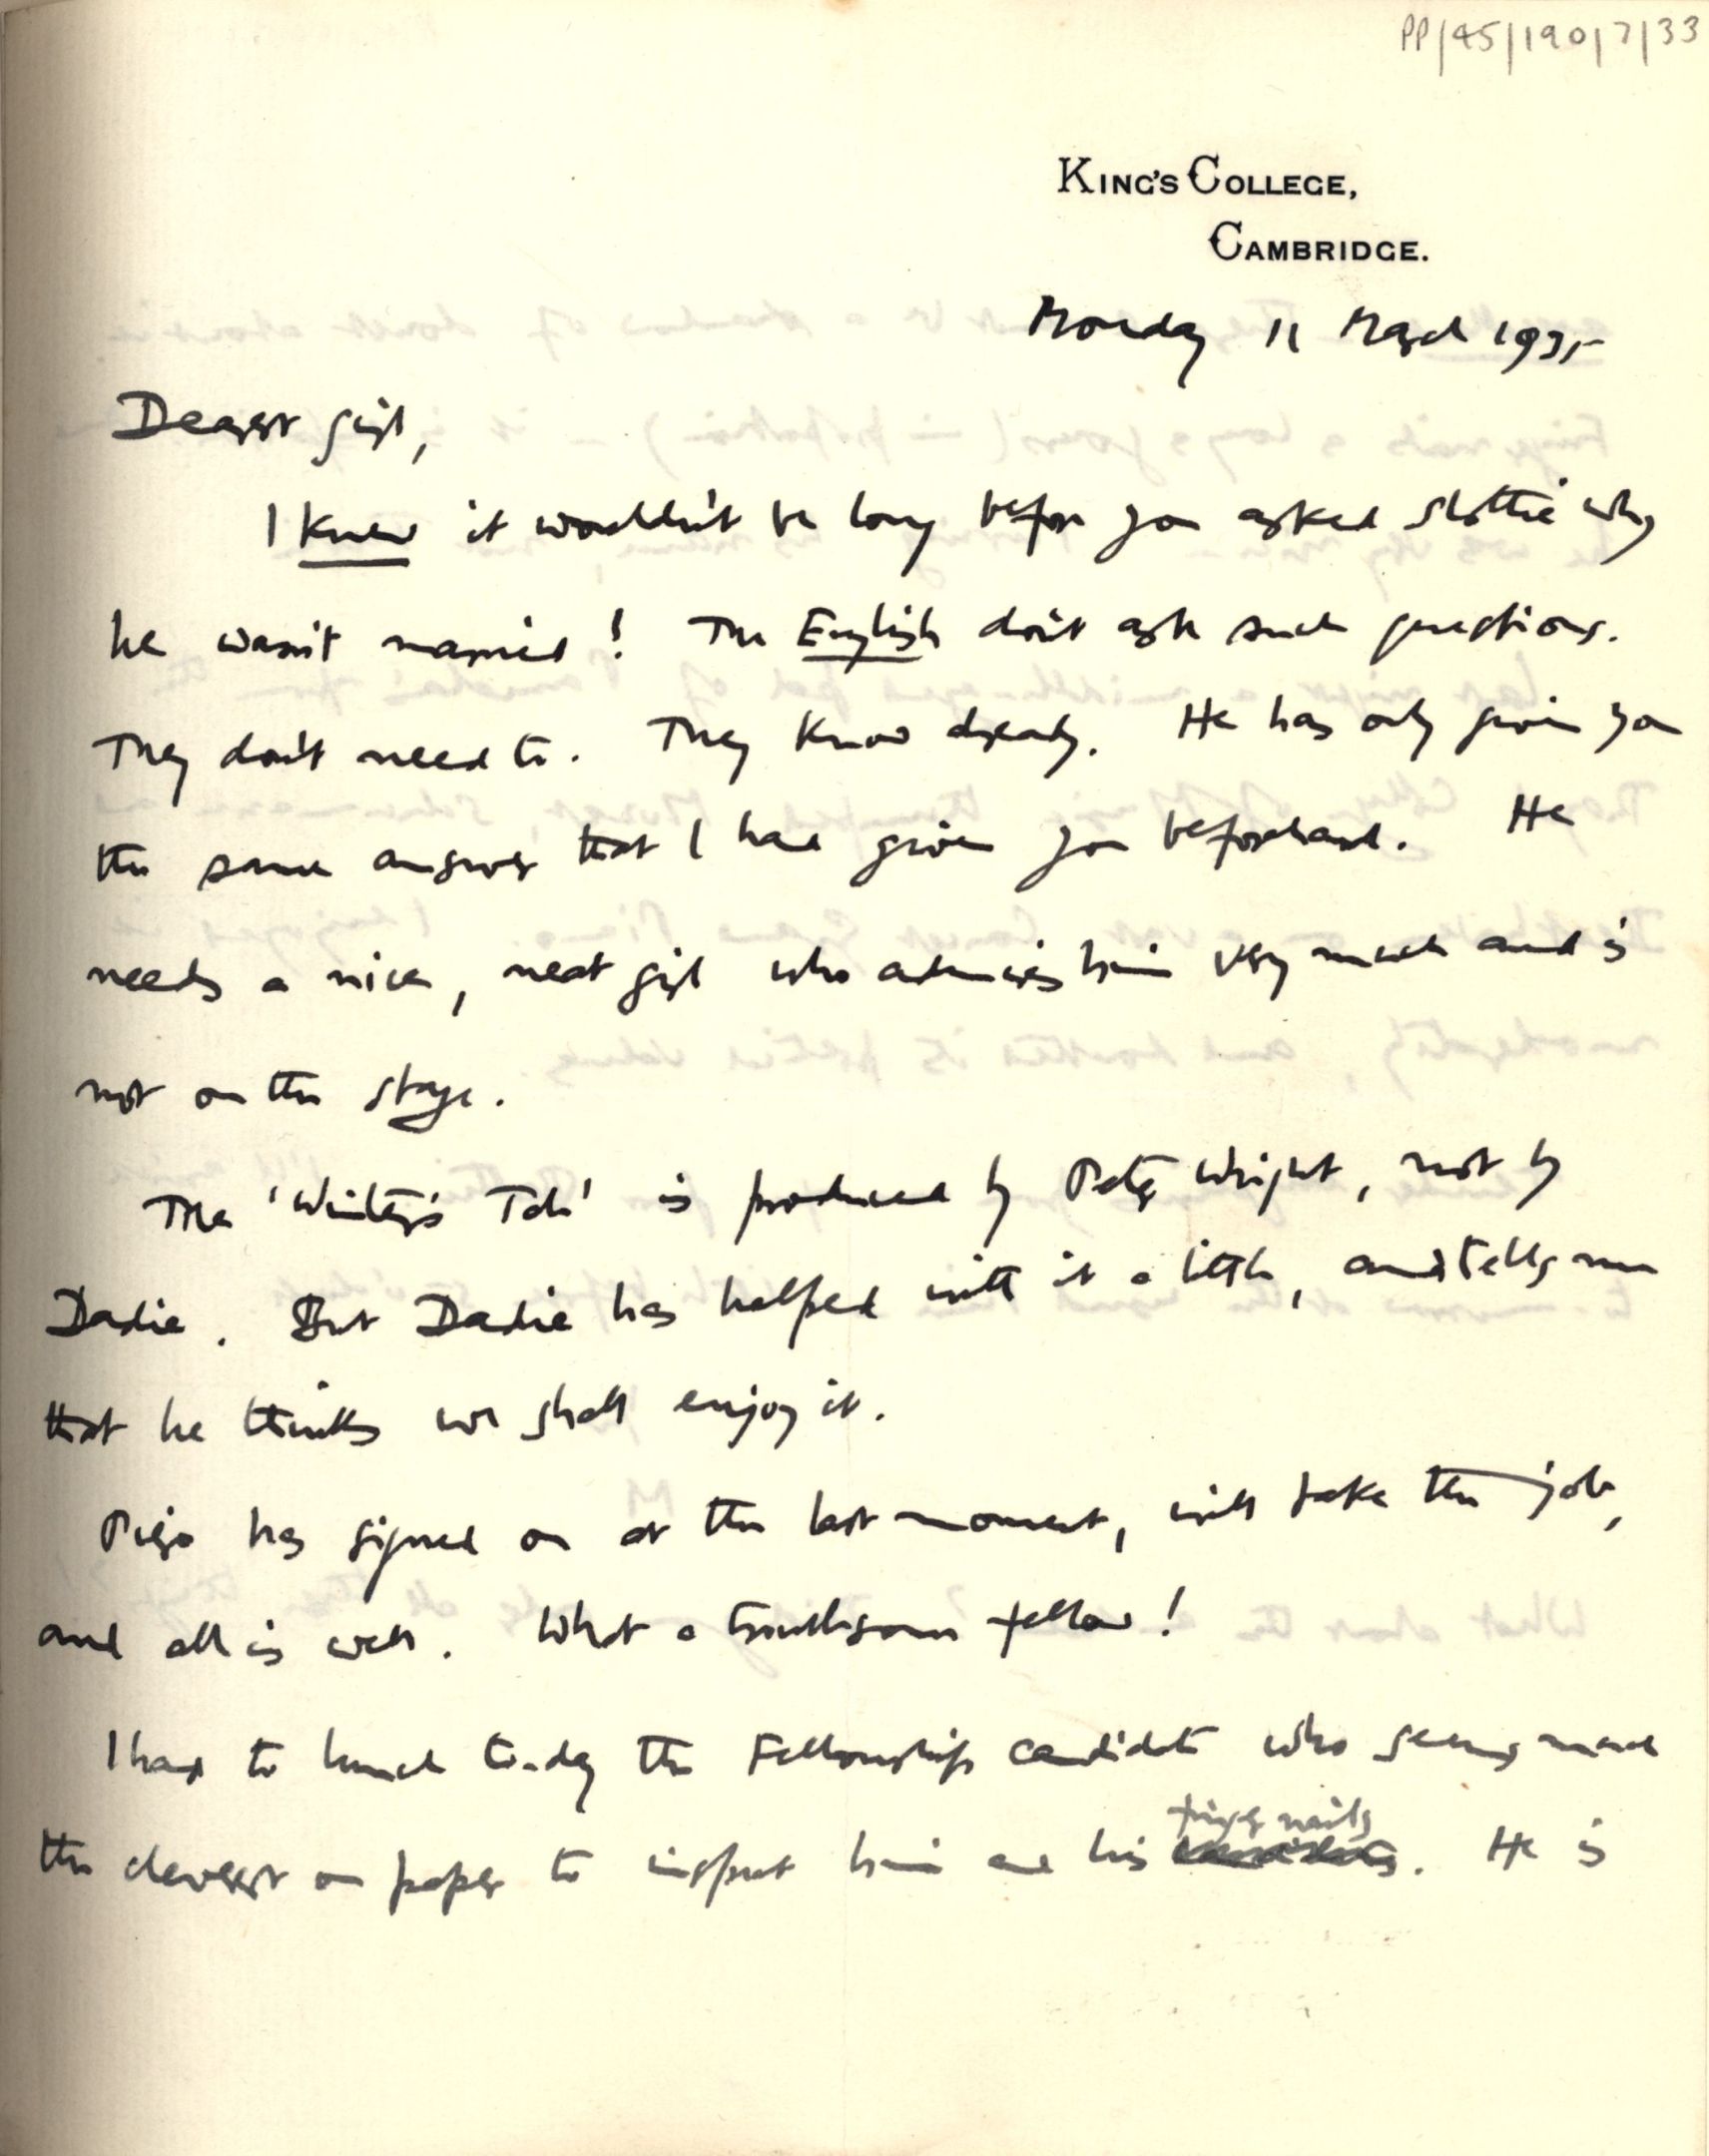 PP/45/190/7/33
KING'S COLLEGE,
CAMBRIDGE.
Monday 11 March 1935
Dearest girl,
I knew it wouldn't be long before you asked Slottie why
he wasn't married! The English don't ask such questions.
They don't need to. They know already. He has only given you
the same answer that I had given you beforehand. He
needs a nice, neat girl who admires him very much and is
not on the stage.
The 'Winter's Tale' is produced by Peter Wright, not by
Dadie. But Dadie has helped with it a little, and tells me
that he thinks we shall enjoy it.
Piero has signed on at the last moment, will take the job,
and all is well. What a troublesome fellow!
I had to lunch today the Fellowship candidate who seems much
the cleverest on paper to inspect him and his finger nails. He is